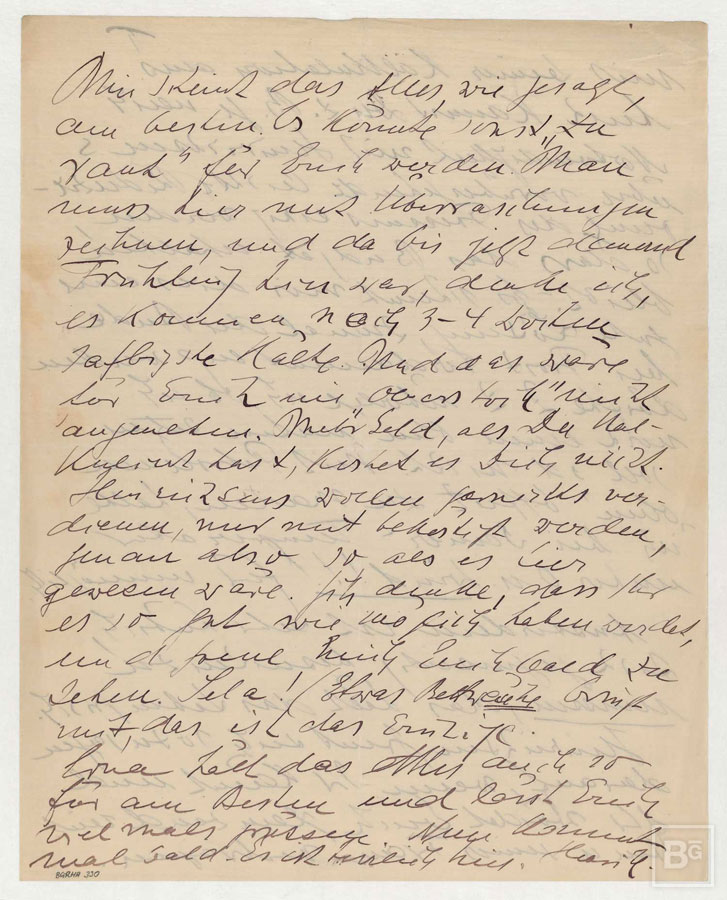 Mir scheint das Alles, wie gesagt,
am besten. Es könnte sonst „zu
rauh" für Euch werden. Man
muss hier mit Überraschungen
rechnen, und da bis jetzt dauernd
Frühling hier war, denke ich,
es kommen noch 3–4 Wochen
Kälte. Und das wäre
für Euch nicht
angenehm. Mehr Geld, als Du kal-
kuliert hast, kostet es Dich nicht.
wollen garnichts ver-
dienen, nur mit beköstigt werden,
genau also so als es hier
gewesen wäre. Ich denke, dass Ihr
es so gut wie möglich haben werdet,
und freue mich Euch bald zu
sehen. Sela! (Etwas Bettwäsche bringt
mit, das ist das Einzige.
Erna hält das Alles auch so
für am Besten und lässt Euch
vielmals grüssen. Nun kommt
mal bald. Es ist wirklich
BGRHA 330
BG